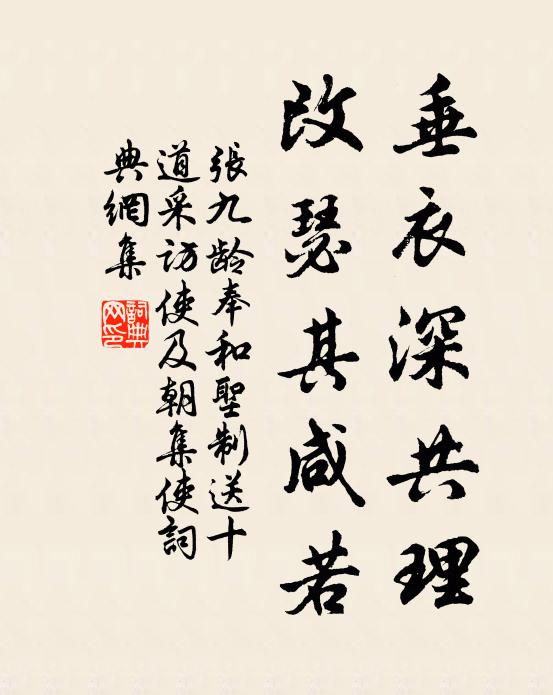 垂衣深共理
改瑟其咸若
張九龄奉和聖制送十
道采访使及朝集使詞
典網集
詞典網印